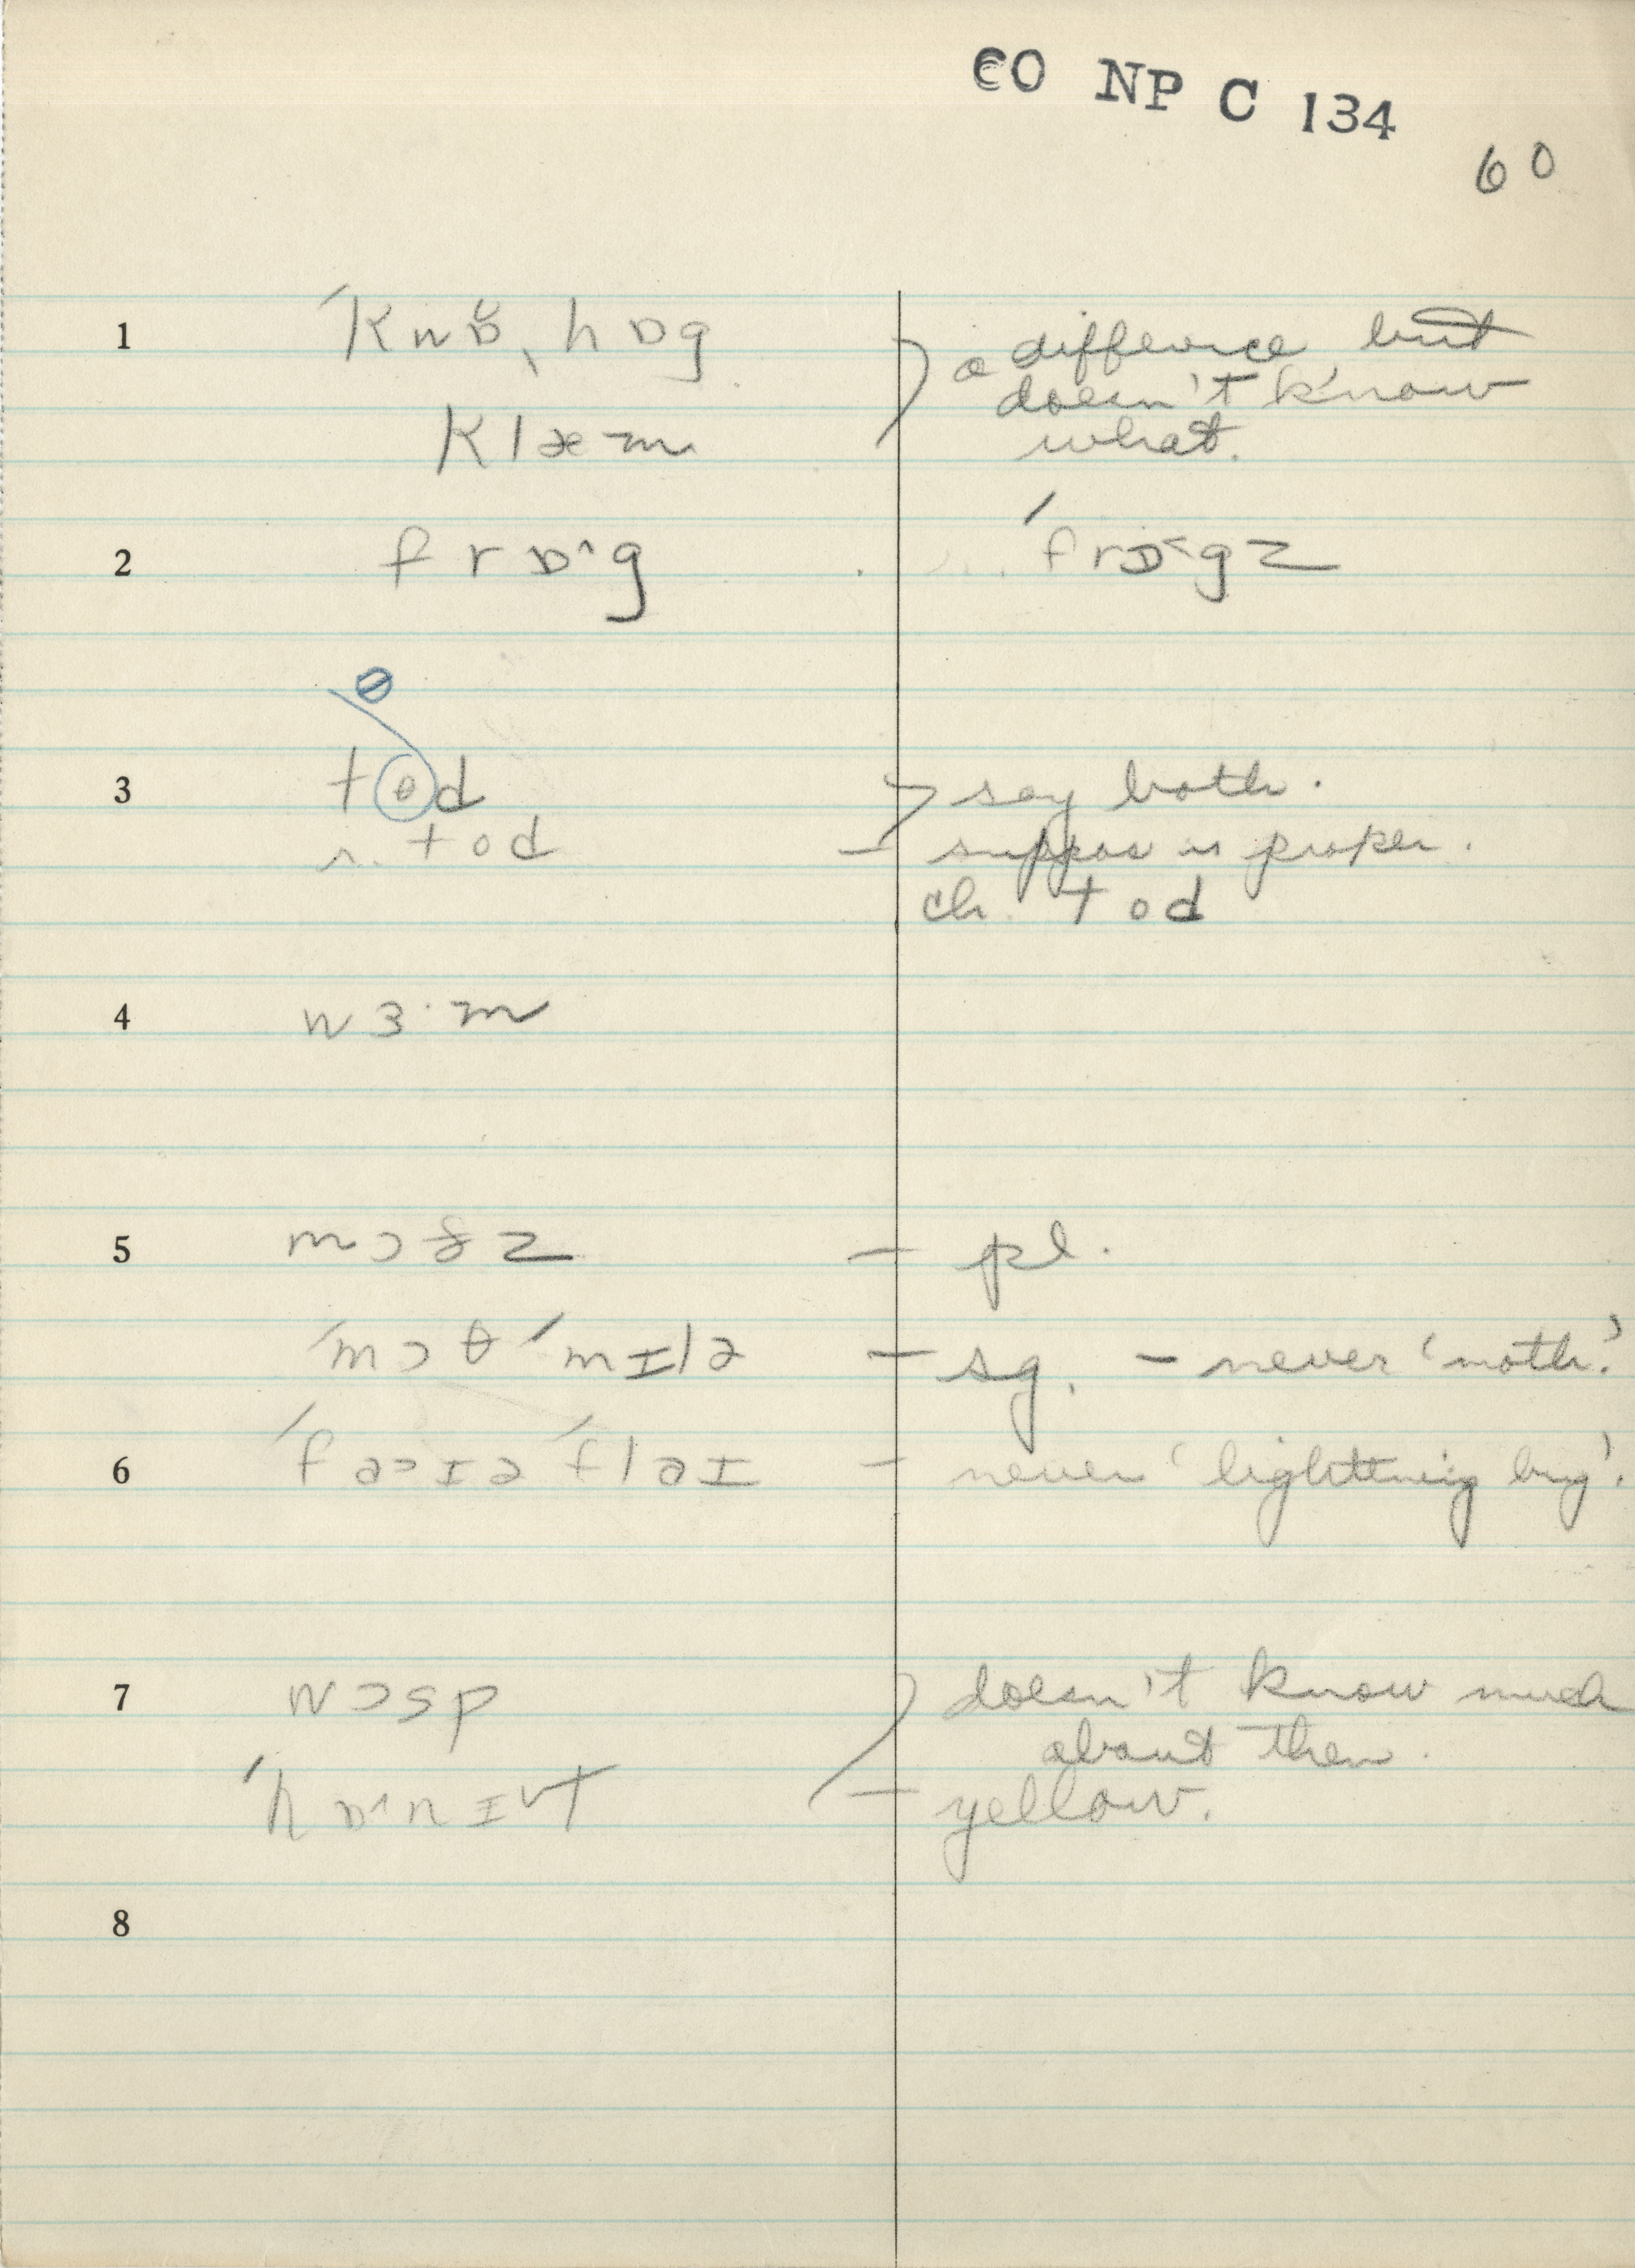 CO NP C 134
60
1 ˈkwɒ̆ˌhɒg a difference but
doesn't know
klæm what.
2 frɒ^g ˈfrɒ˂gz
ɵ
3 tɵd say both.
r. tod – suppos is proper.
ch. tod
4 wɜ·m
5 mɔðz – pl.
ˈmɔθ ˈmɪlə – sg. – never 'moth.'
6 ˈfaɔɪə ˈflaɪ – never 'lightning bug'.
7 wɔsp doesn't know much
about them.
ˈhɒ^nɪ˅t – yellow.
8